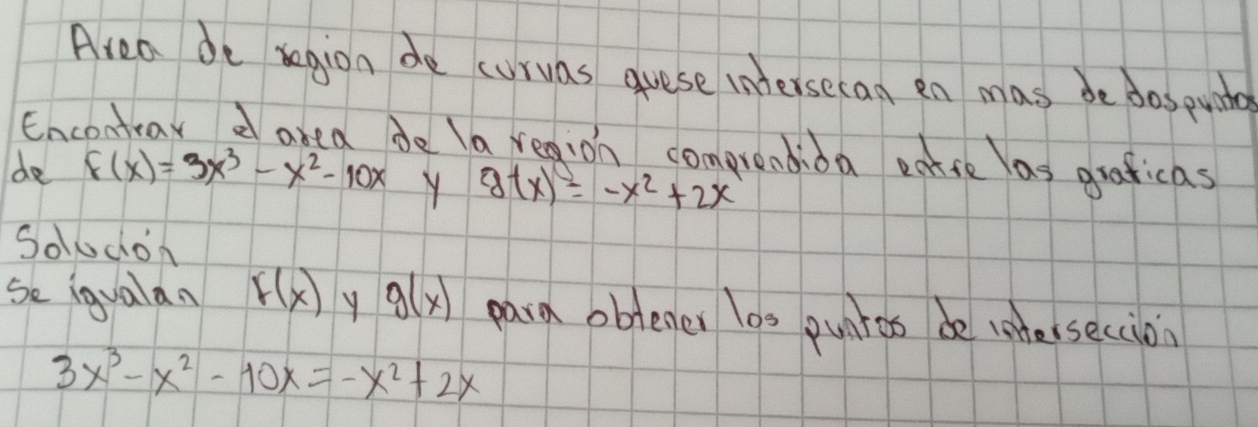 Area de region de curvas que se intersecan en mas de dos puntos
Encontrar el area de la región comprendida entre las graficas
de f(x) = 3x³ - x² - 10x y g(x) = -x² + 2x
Solución
Se igualan f(x) y g(x) para obtener los puntos de intersección
3x³ - x² - 10x = -x² + 2x